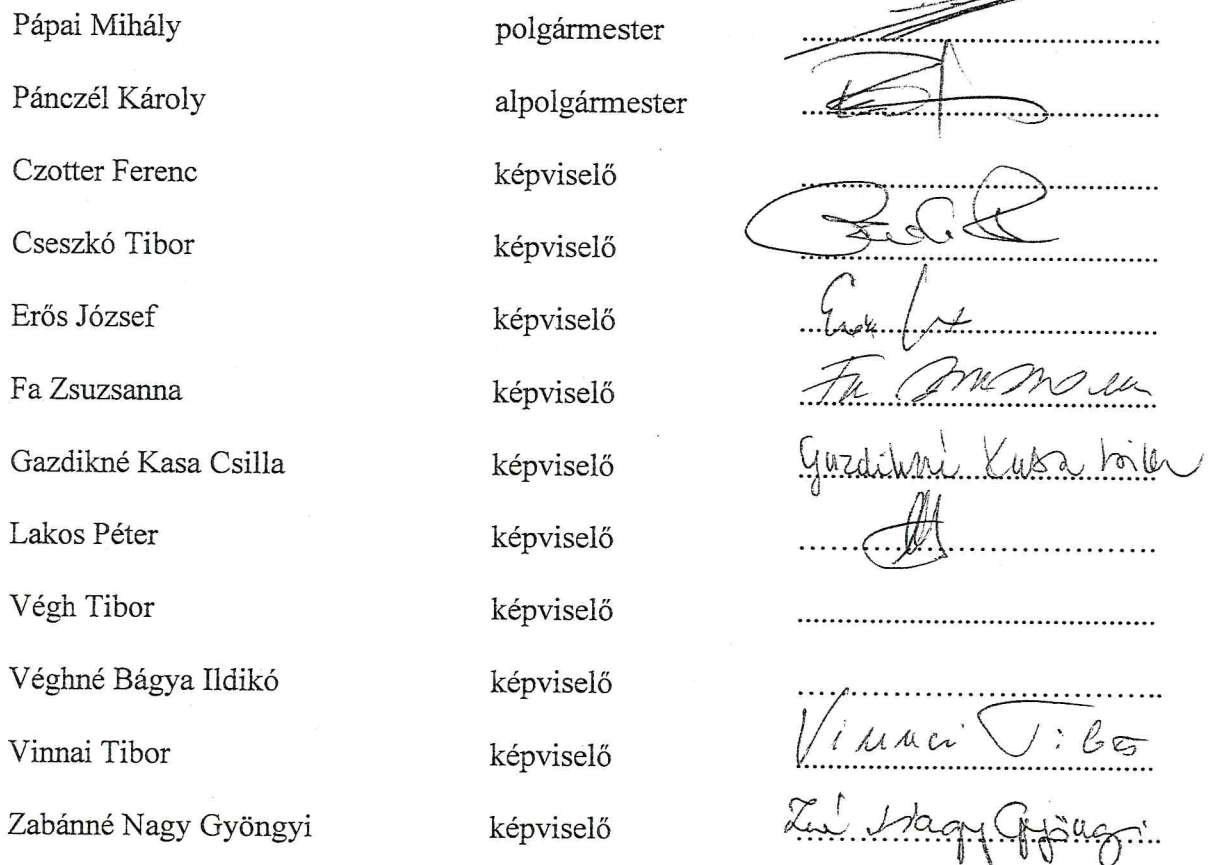 Pápai Mihály polgármester
Pánczél Károly alpolgármester
Czotter Ferenc képviselő
Cseszkó Tibor képviselő
Erős József képviselő
Fa Zsuzsanna képviselő Fa Zsuzsanna
Gazdikné Kasa Csilla képviselő Gazdikné Kasa Csilla
Lakos Péter képviselő
Végh Tibor képviselő
Véghné Bágya Ildikó képviselő
Vinnai Tibor képviselő Vinnai Tibor
Zabánné Nagy Gyöngyi képviselő Nagy Gyöngyi